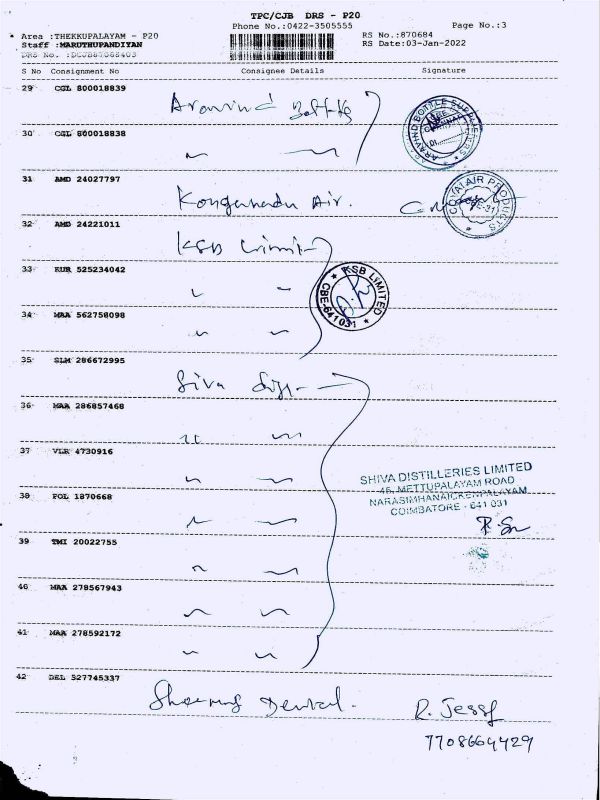 TPC/CJB DRS - P20
Phone No.:0422-3505555
Page No.:3
Area :THEKKUPALAYAM - P20
RS No.:870684
Staff :MARUTHUPANDIYAN
RS Date:03-Jan-2022
DRS No. :DCJB87068403
S No Consignment No Consignee Details Signature
29 CGL 800018839
Aravind
ARAVIND BOTTLE SUPPLIERS
30 CGL 800018838
31 AMD 24027797
Kongunadu Air.
AIR PRODUCTS
32 AMD 24221011
KSB Limit
33 KUR 525234042
KSB LIMITED
CBE-641 031
34 MAA 562758098
35 SLM 286672995
Siva
36 MAA 286857468
37 VLR 4730916
SHIVA DISTILLERIES LIMITED
METTUPALAYAM ROAD
NARASIMHANAICKENPALAYAM
COIMBATORE - 641 031
38 POL 1870668
39 TMI 20022755
40 MAA 278567943
41 MAA 278592172
42 DEL 527745337
Dental.
R.
7708664429